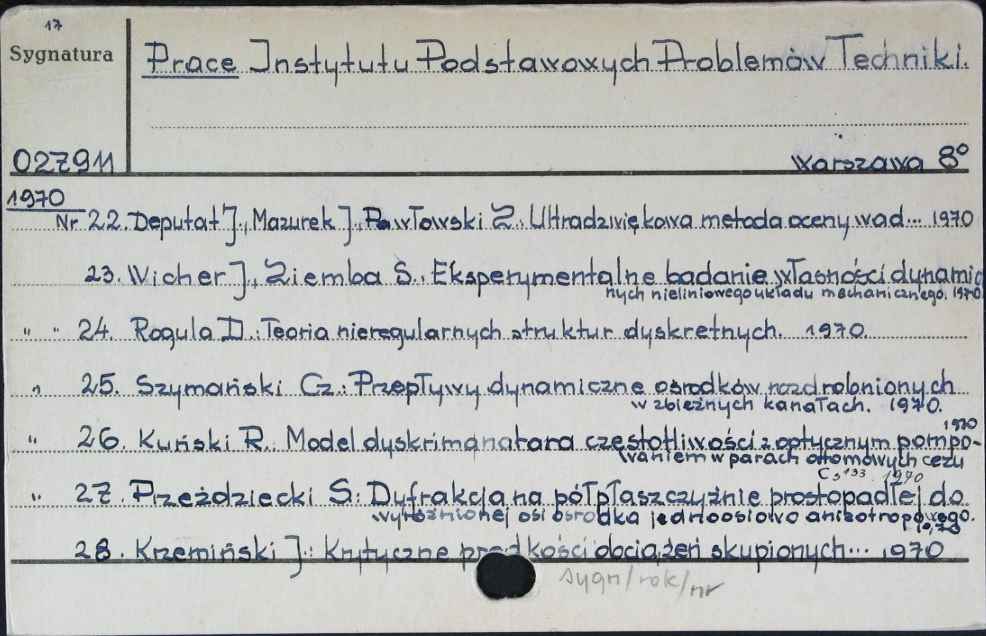 17
Sygnatura
Prace Instytutu Podstawowych Problemów Techniki.
027911
Warszawa 8°
1970
Nr 22. Deputat J., Mazurek J., Pawłowski Z.: Ultradźwiękowa metoda oceny wad... 1970
23. Wicher J., Ziemba S.: Eksperymentalne badanie własności dynamic
nych nieliniowego układu mechanicznego. 1970
" " 24. Rogula D.: Teoria nieregularnych struktur dyskretnych. 1970.
" 25. Szymański Cz.: Przepływy dynamiczne ośrodków rozdrobnionych
w zbieżnych kanałach. 1970.
" 26. Kuński R. Model dyskrimanatora częstotliwości z optycznym pompo-
1970
waniem w parach attomowych cezu
Cs133. 1970
" 27. Przeździecki S: Dyfrakcja na półpłaszczyźnie prostopadłej do
wyróżnionej osi ośrodka jednoosiowo anizotropowego.
1970
28. Krzemiński J.: Krytyczne prędkości obciążeń skupionych... 1970
sygn/rok/nr